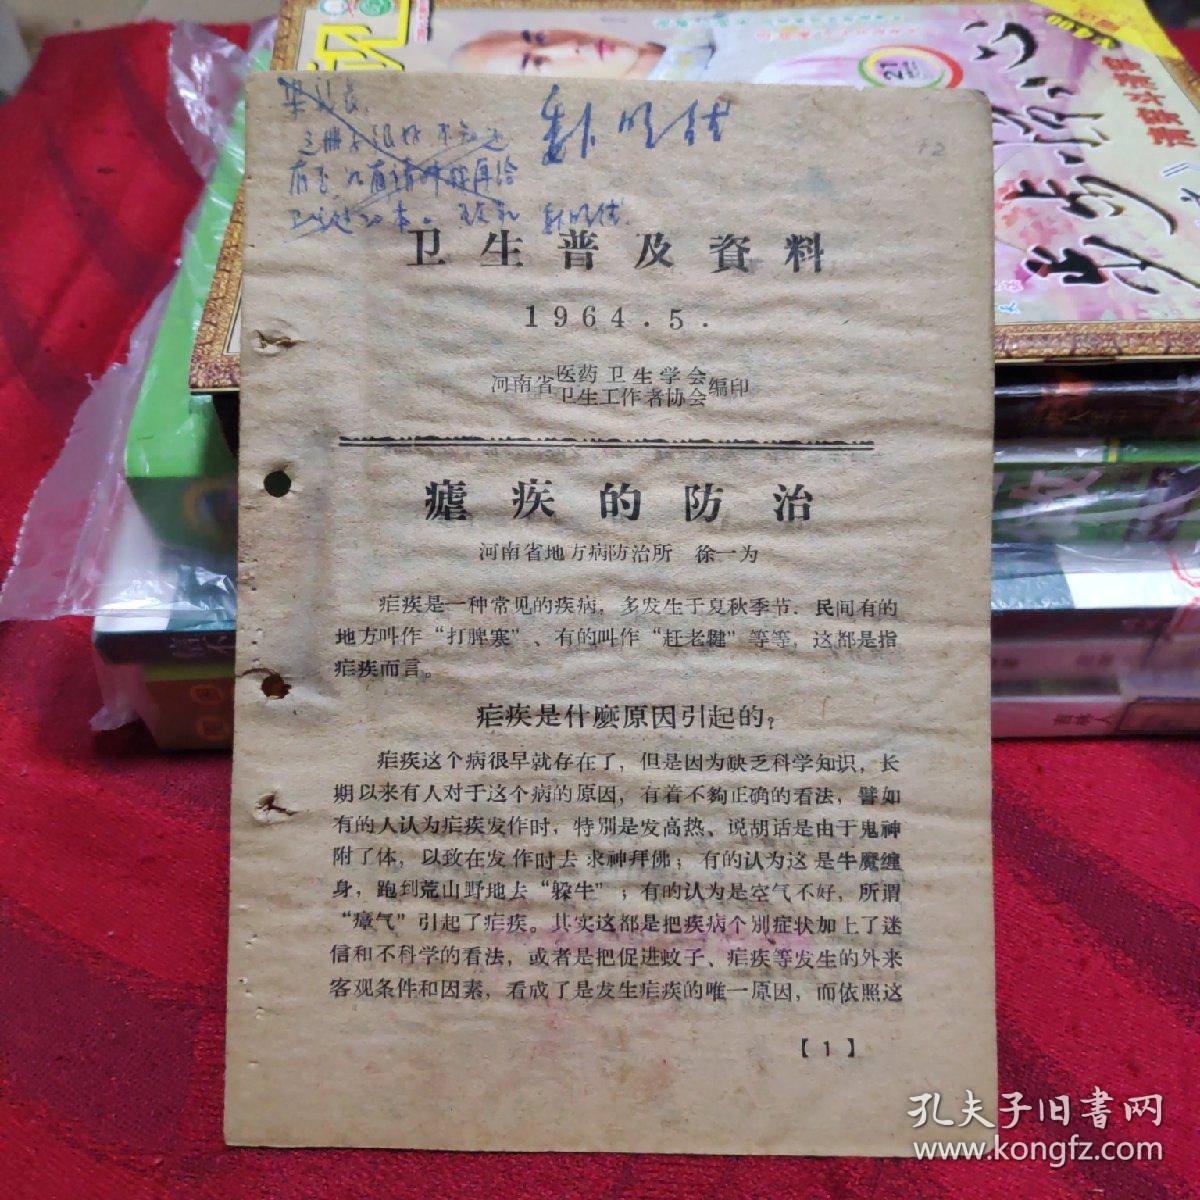 卫生普及資料
1964.5.
河南省医药卫生学会卫生工作者协会编印
瘧疾的防治
河南省地方病防治所 徐一为
疟疾是一种常见的疾病，多发生于夏秋季节．民间有的
地方叫作“打脾寒”、有的叫作“赶老犍”等等，这都是指
疟疾而言。
疟疾是什麽原因引起的？
疟疾这个病很早就存在了，但是因为缺乏科学知识，长
期以来有人对于这个病的原因，有着不夠正确的看法，譬如
有的人认为疟疾发作时，特别是发高热、说胡话是由于鬼神
附了体，以致在发作时去求神拜佛；有的认为这是牛魔缠
身，跑到荒山野地去“躲牛”；有的认为是空气不好，所谓
“瘴气”引起了疟疾。其实这都是把疾病个别症状加上了迷
信和不科学的看法，或者是把促进蚊子、疟疾等发生的外来
客观条件和因素，看成了是发生疟疾的唯一原因，而依照这
【1】
21
孔夫子旧书网
www.kongfz.com